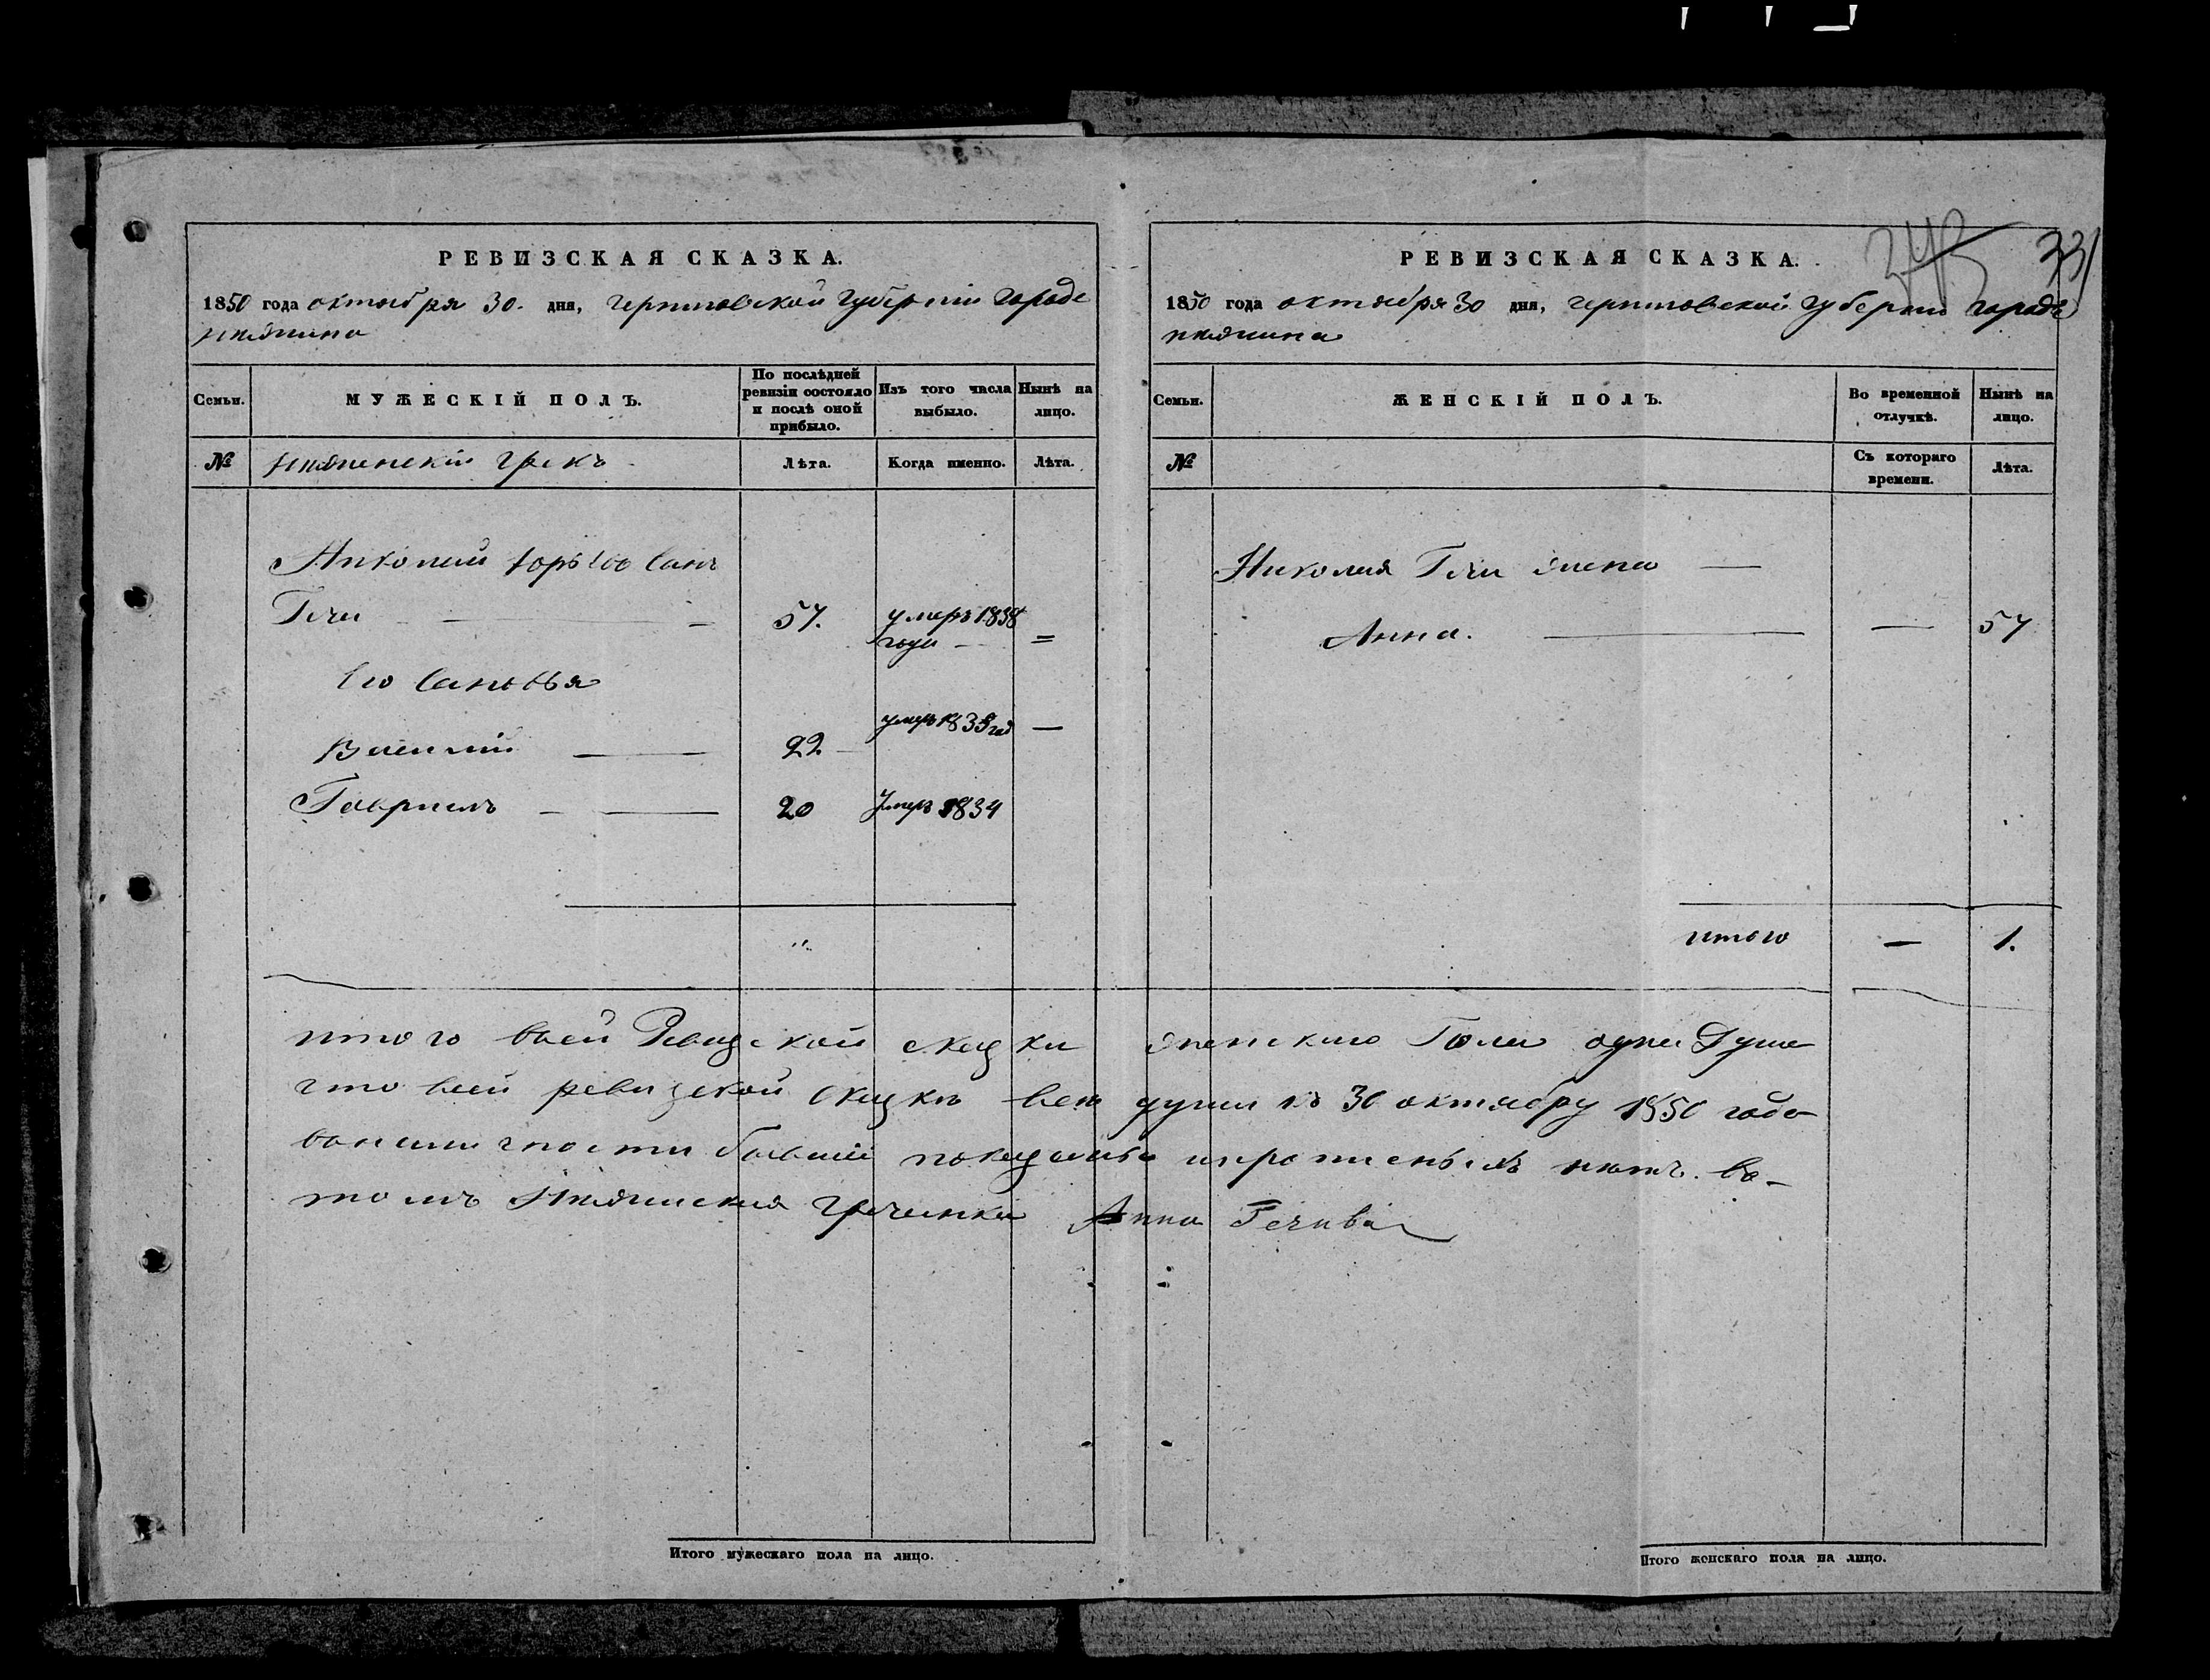 РЕВИЗСКАЯ СКАЗКА.
1850 года октября 30. дня, черниговской губерніи города
нѣжина
Семьи.
МУЖЕСКІЙ ПОЛЪ.
По послѣдней ревизіи состояло и послѣ оной прибыло.
Изъ того числа выбыло.
Нынѣ на лицо.
№
нѣженскій грекъ
Лѣта.
Когда именно.
Лѣта.
Николай
Гечи — 57. умеръ 1838
года — =
Его Сановья
Василій — 22 умеръ 1835 год —
Гавриилъ — 20 Умеръ 1834
"
Итого мужескаго пола на лицо.
331
РЕВИЗСКАЯ СКАЗКА.
1850 года октября 30 дня, черниговской губерніи города
нѣжина
Семьи.
ЖЕНСКІЙ ПОЛЪ.
Во временной отлучкѣ.
Нынѣ на лицо.
№
Съ котораго времени.
Лѣта.
Николая Гечи жена —
Анна. — — 57
итого — 1.
итого всей Ревизской сказки женскаго Пола одна Душа
что всей ревизской Сказкѣ все души къ 30 октябру 1850 года
воналичности бывшіе показаны ипрописныхъ нѣтъ. въ-
томъ нѣжинская гречанка Анна Гечива
Итого женскаго пола на лицо.